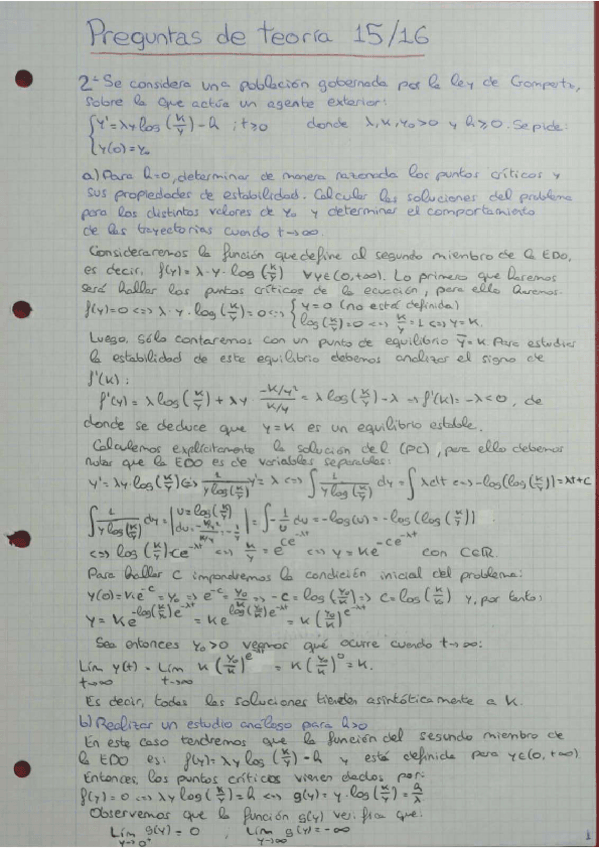 Preguntas de teoría 15/16
2- Se considera una población gobernada por la ley de Gompertz,
sobre la que actúa un agente exterior:
{ y' = λy log(K/y) - h ; t≥0 donde λ, K, y₀ > 0 y h ≥ 0. Se pide:
{ y(0) = y₀
a) Para h=0, determinar de manera razonada los puntos críticos y
sus propiedades de estabilidad. Calcular las soluciones del problema
para los distintos valores de y₀ y determinar el comportamiento
de las trayectorias cuando t→∞.
Consideraremos la función que define al segundo miembro de la EDO,
es decir, f(y) = λ·y·log(K/y) ∀y∈(0,+∞). Lo primero que haremos
será hallar los puntos críticos de la ecuación, para ello haremos:
f(y)=0 <=> λ·y·log(K/y)=0 <=> { y=0 (no está definida)
{ log(K/y)=0 <=> K/y=1 <=> y=K.
Luego, sólo contaremos con un punto de equilibrio ȳ=K. Para estudiar
la estabilidad de este equilibrio debemos analizar el signo de
f'(K):
f'(y) = λ log(K/y) + λy (-K/y²)/(K/y) = λ log(K/y) - λ => f'(K) = -λ < 0, de
donde se deduce que y=K es un equilibrio estable.
Calculemos explícitamente la solución del (PC), para ello debemos
notar que la EDO es de variables separables:
y' = λy·log(K/y) <=> 1/(y log(K/y)) y' = λ <=> ∫ 1/(y log(K/y)) dy = ∫ λdt <=> -log(log(K/y)) = λt+C
∫ 1/(y log(K/y)) dy = | u=log(K/y) du=(-K/y²)/(K/y) = -1/y | = ∫ -1/u du = -log(u) = -log(log(K/y))
<=> log(K/y) = Ce^(-λt) <=> K/y = e^(Ce^(-λt)) <=> y = Ke^(-Ce^(-λt)) con C∈ℝ.
Para hallar C impondremos la condición inicial del problema:
y(0) = Ke^(-C) = y₀ => e^(-C) = y₀/K => -C = log(y₀/K) => C = log(K/y₀) y, por tanto:
y = Ke^(-log(K/y₀)e^(-λt)) = Ke^(log(y₀/K)e^(-λt)) = K(y₀/K)^(e^(-λt))
Sea entonces y₀>0 veamos qué ocurre cuando t→∞:
Lím y(t) = Lím K(y₀/K)^(e^(-λt)) = K(y₀/K)⁰ = K.
t→∞ t→∞
Es decir, todas las soluciones tienden asintóticamente a K.
b) Realizar un estudio análogo para h>0
En este caso tendremos que la función del segundo miembro de
la EDO es: f(y) = λy log(K/y) - h y está definida para y∈(0,+∞).
Entonces, los puntos críticos vienen dados por:
f(y)=0 <=> λy log(K/y) = h <=> g(y) = y·log(K/y) = h/λ
Observemos que la función g(y) verifica que:
Lím g(y) = 0 , Lím g(y) = -∞
y→0⁺ y→∞
1